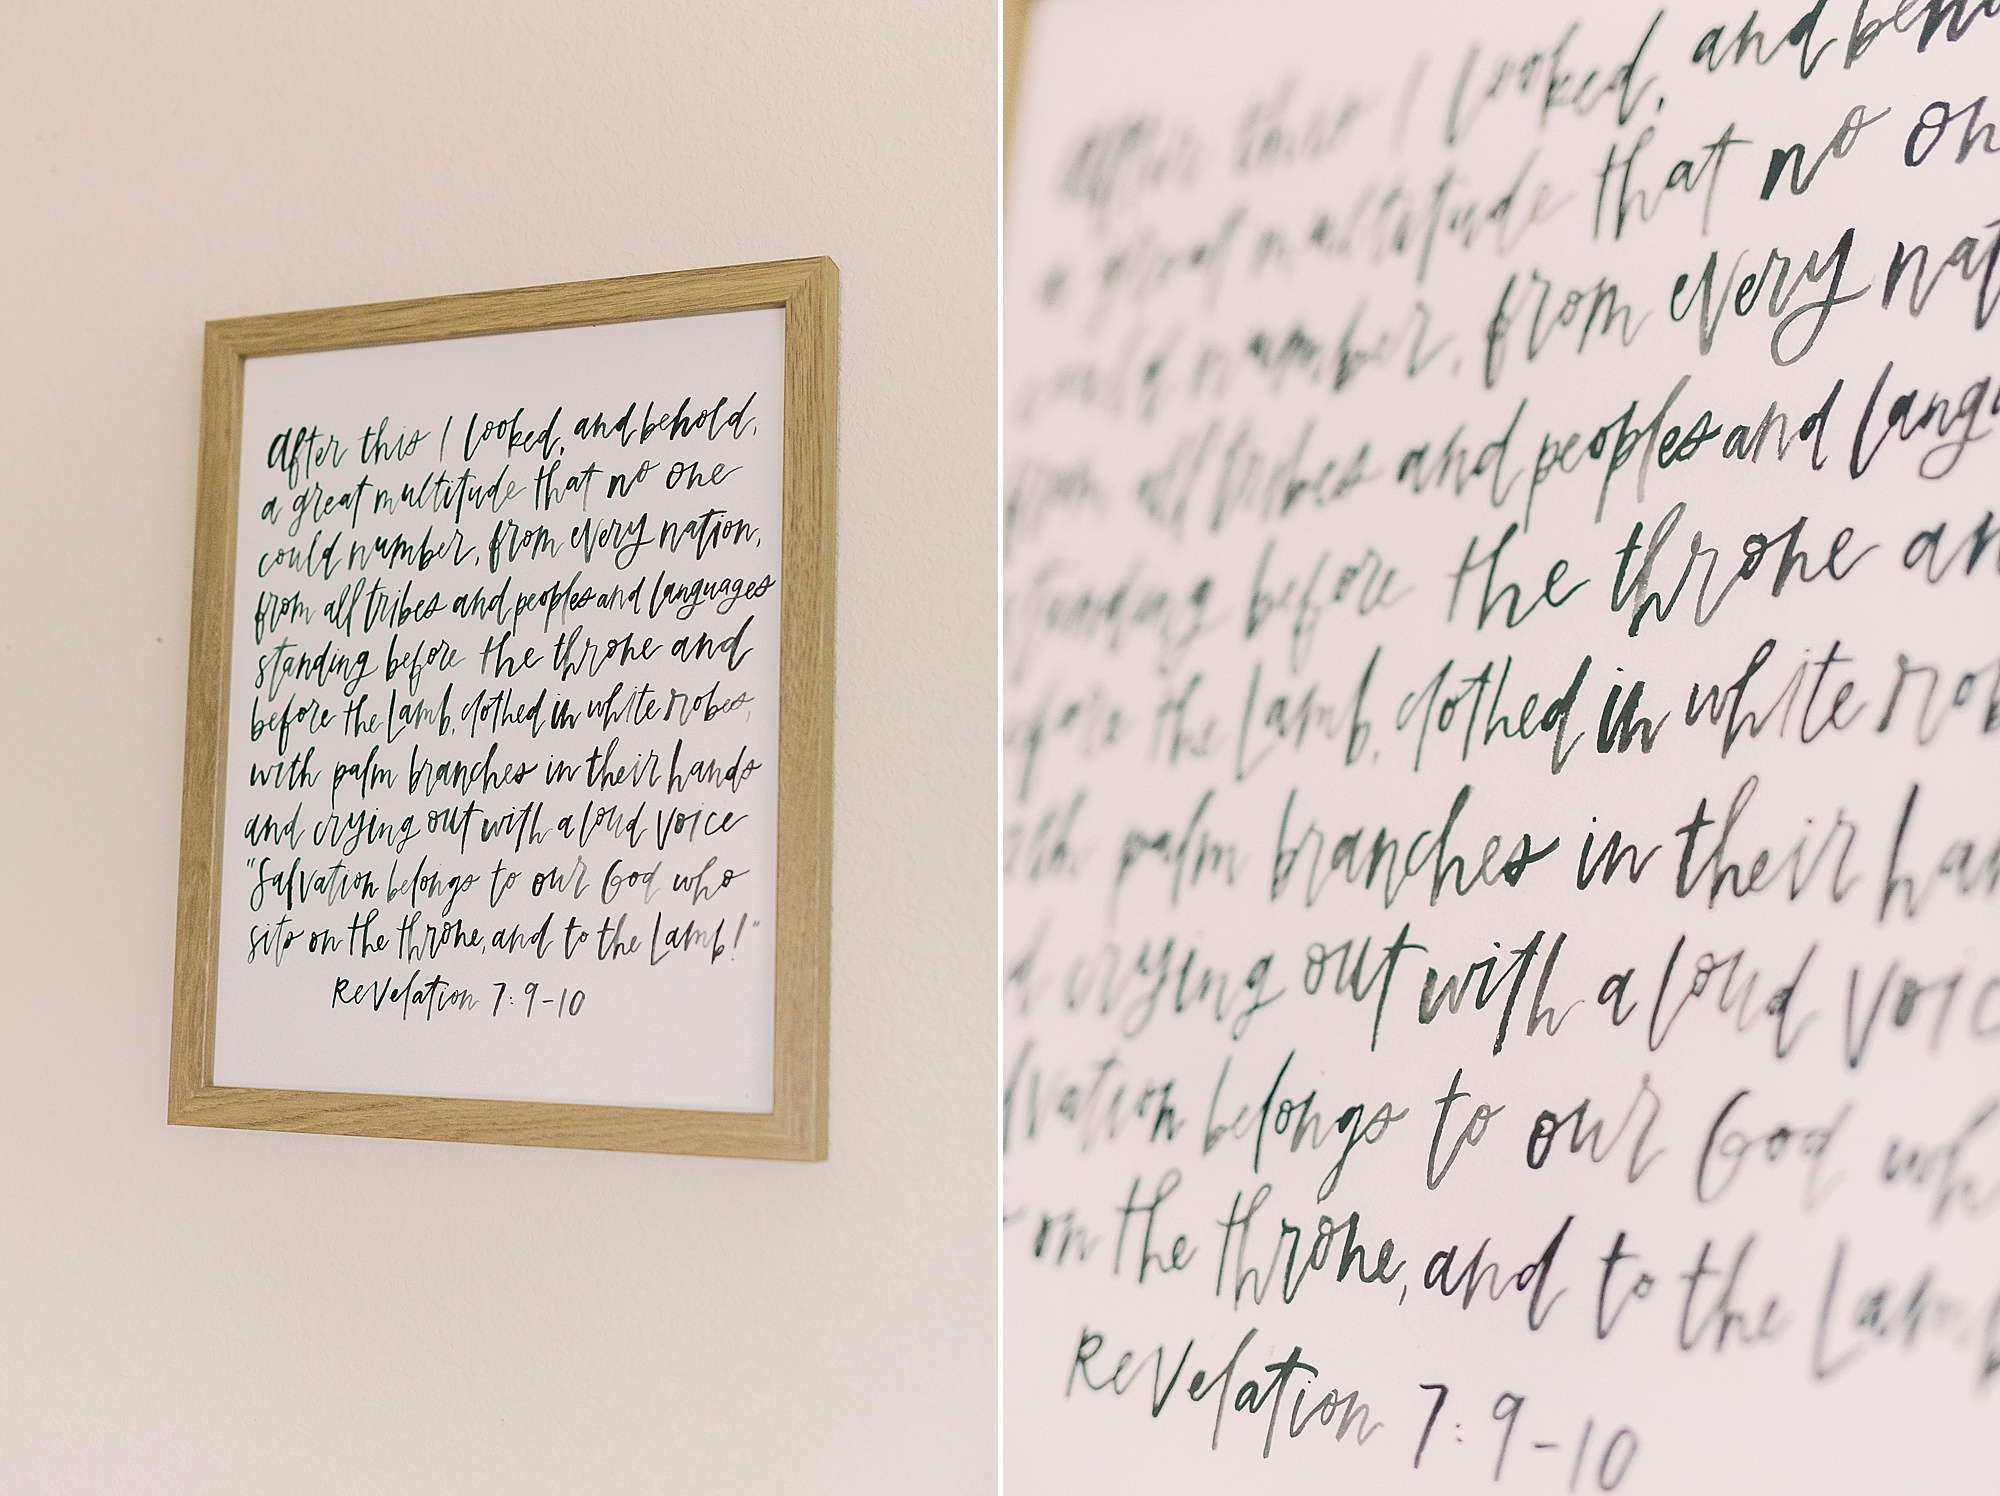 After this I looked, and behold,
a great multitude that no one
could number, from every nation,
from all tribes and peoples and languages
standing before the throne and
before the Lamb, clothed in white robes,
with palm branches in their hands
and crying out with a loud voice
"Salvation belongs to our God who
sits on the throne, and to the Lamb!"
Revelation 7:9-10
After this I looked, and beho
a great multitude that no on
could number, from every nat
from all tribes and peoples and langu
standing before the throne an
efore the Lamb, clothed in white rob
ith palm branches in their han
d crying out with a loud voic
lvation belongs to our God wh
on the throne, and to the Lamb
Revelation 7:9-10